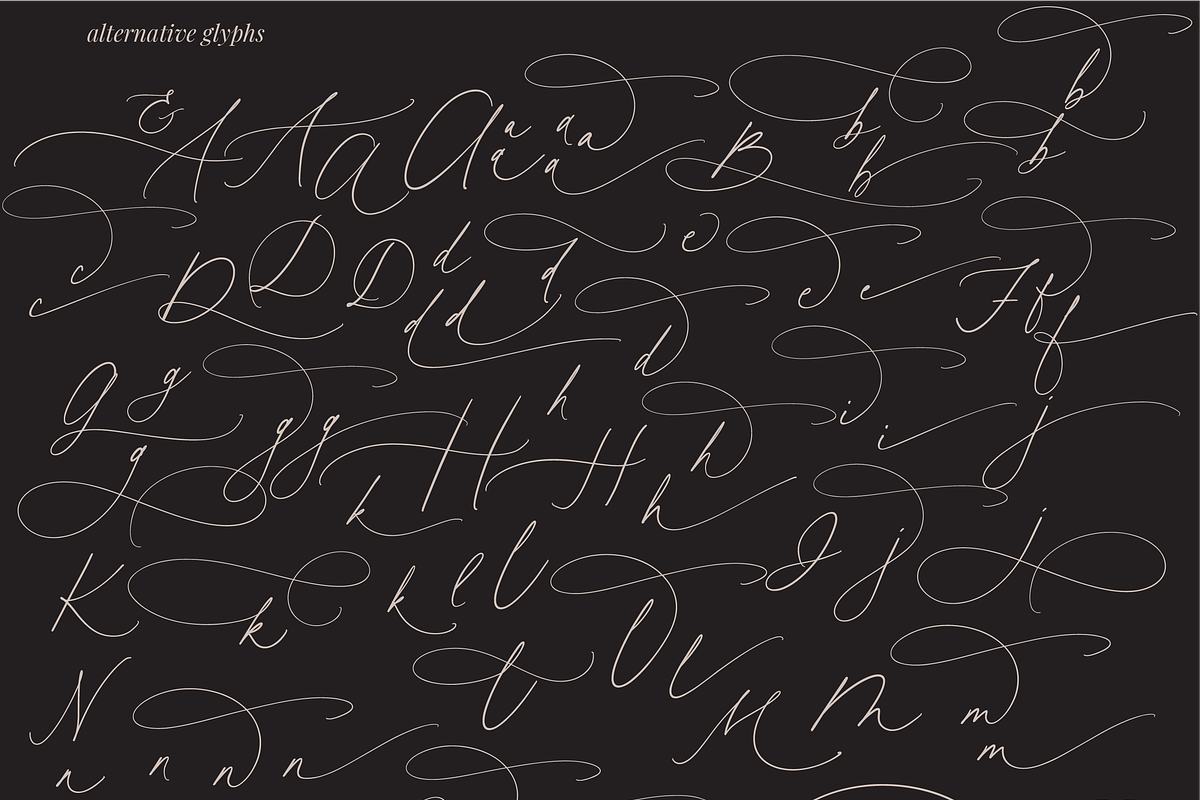 alternative glyphs
& A A a a a a a a a a B b b b b
c c D D D d d d d d e e e F f f
g g g g g H H h h h i i j
k I j j
K k k l l l l l
N n n n n M M m m